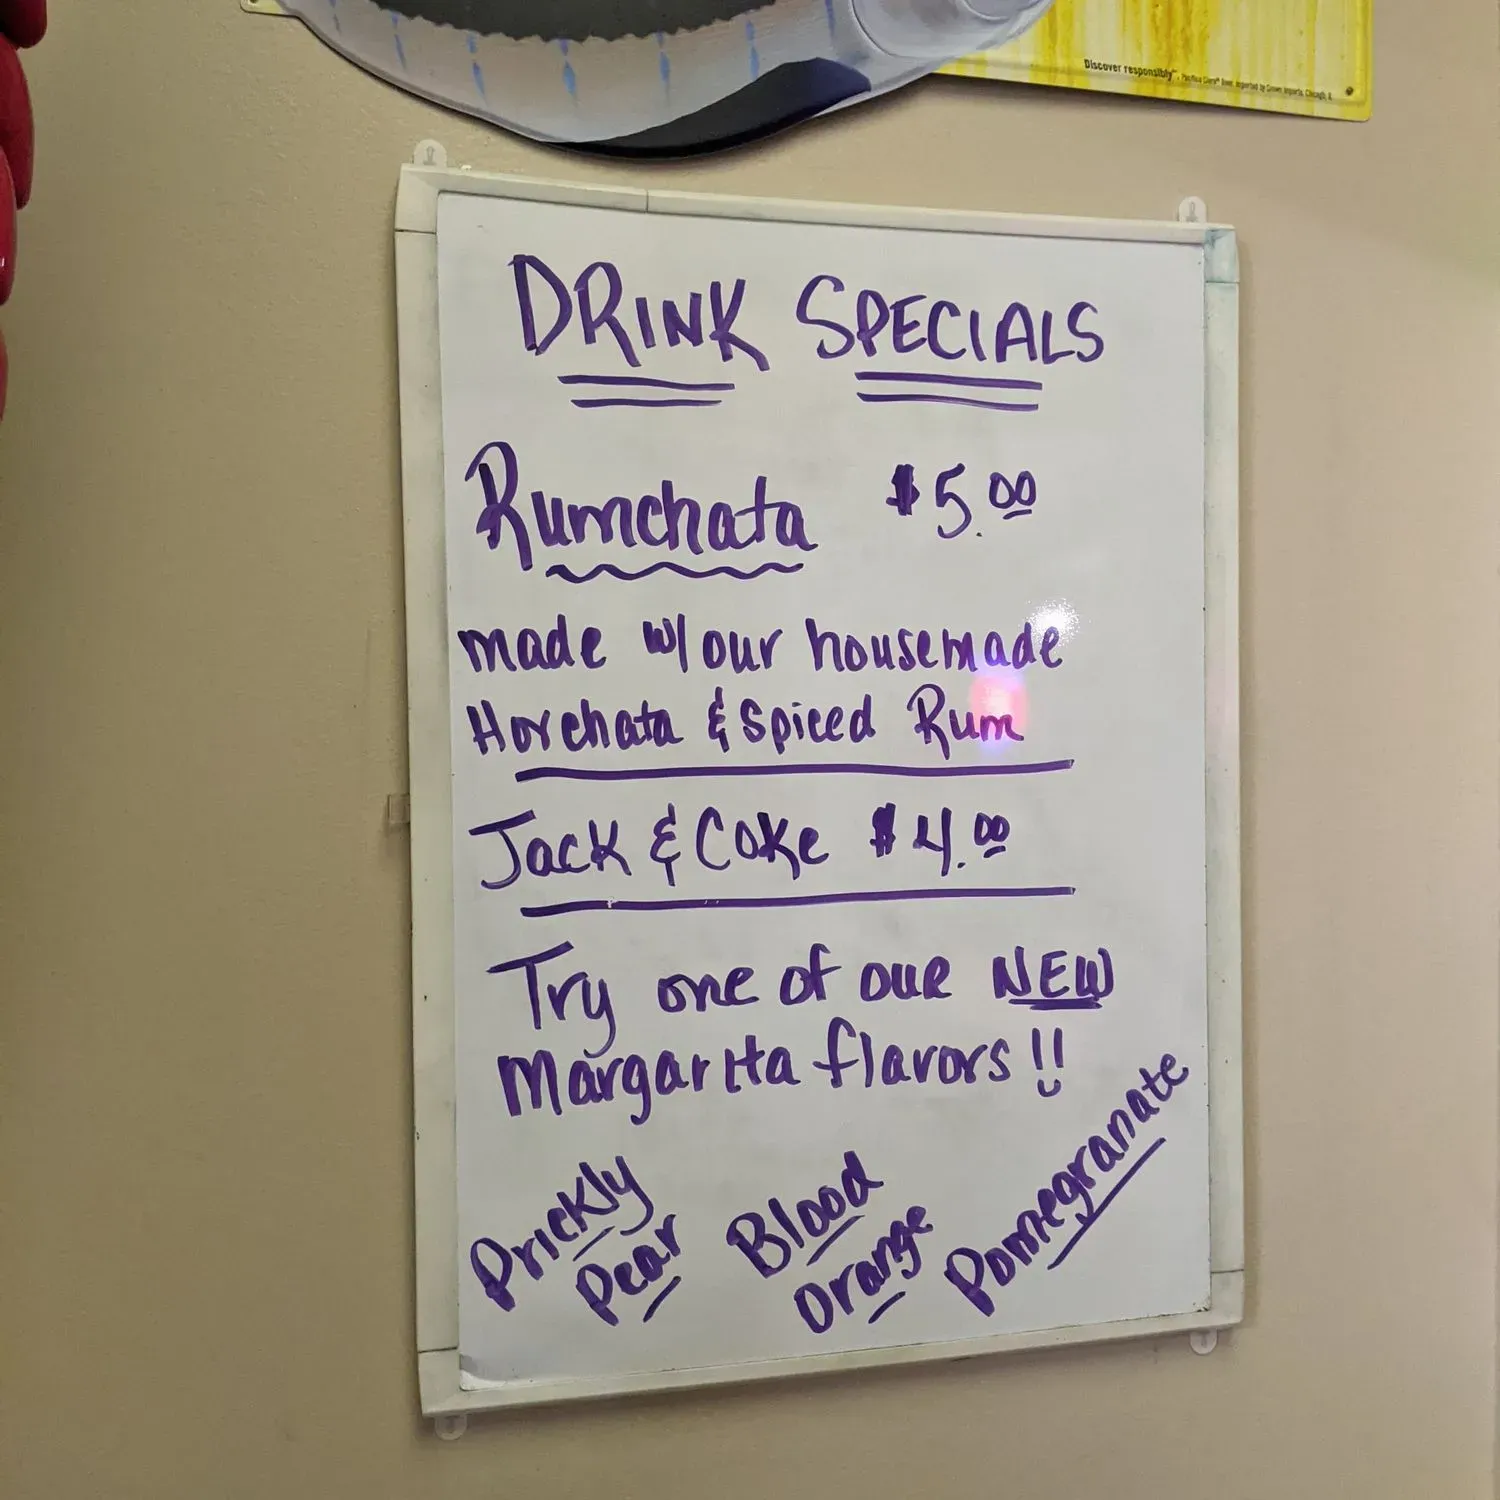 Discover responsibly™.
DRINK SPECIALS
Rumchata $5.00
made w/ our housemade
Horchata & Spiced Rum
Jack & Coke $4.00
Try one of our NEW
Margarita flavors!!
Prickly
Pear
Blood
Orange
Pomegranate